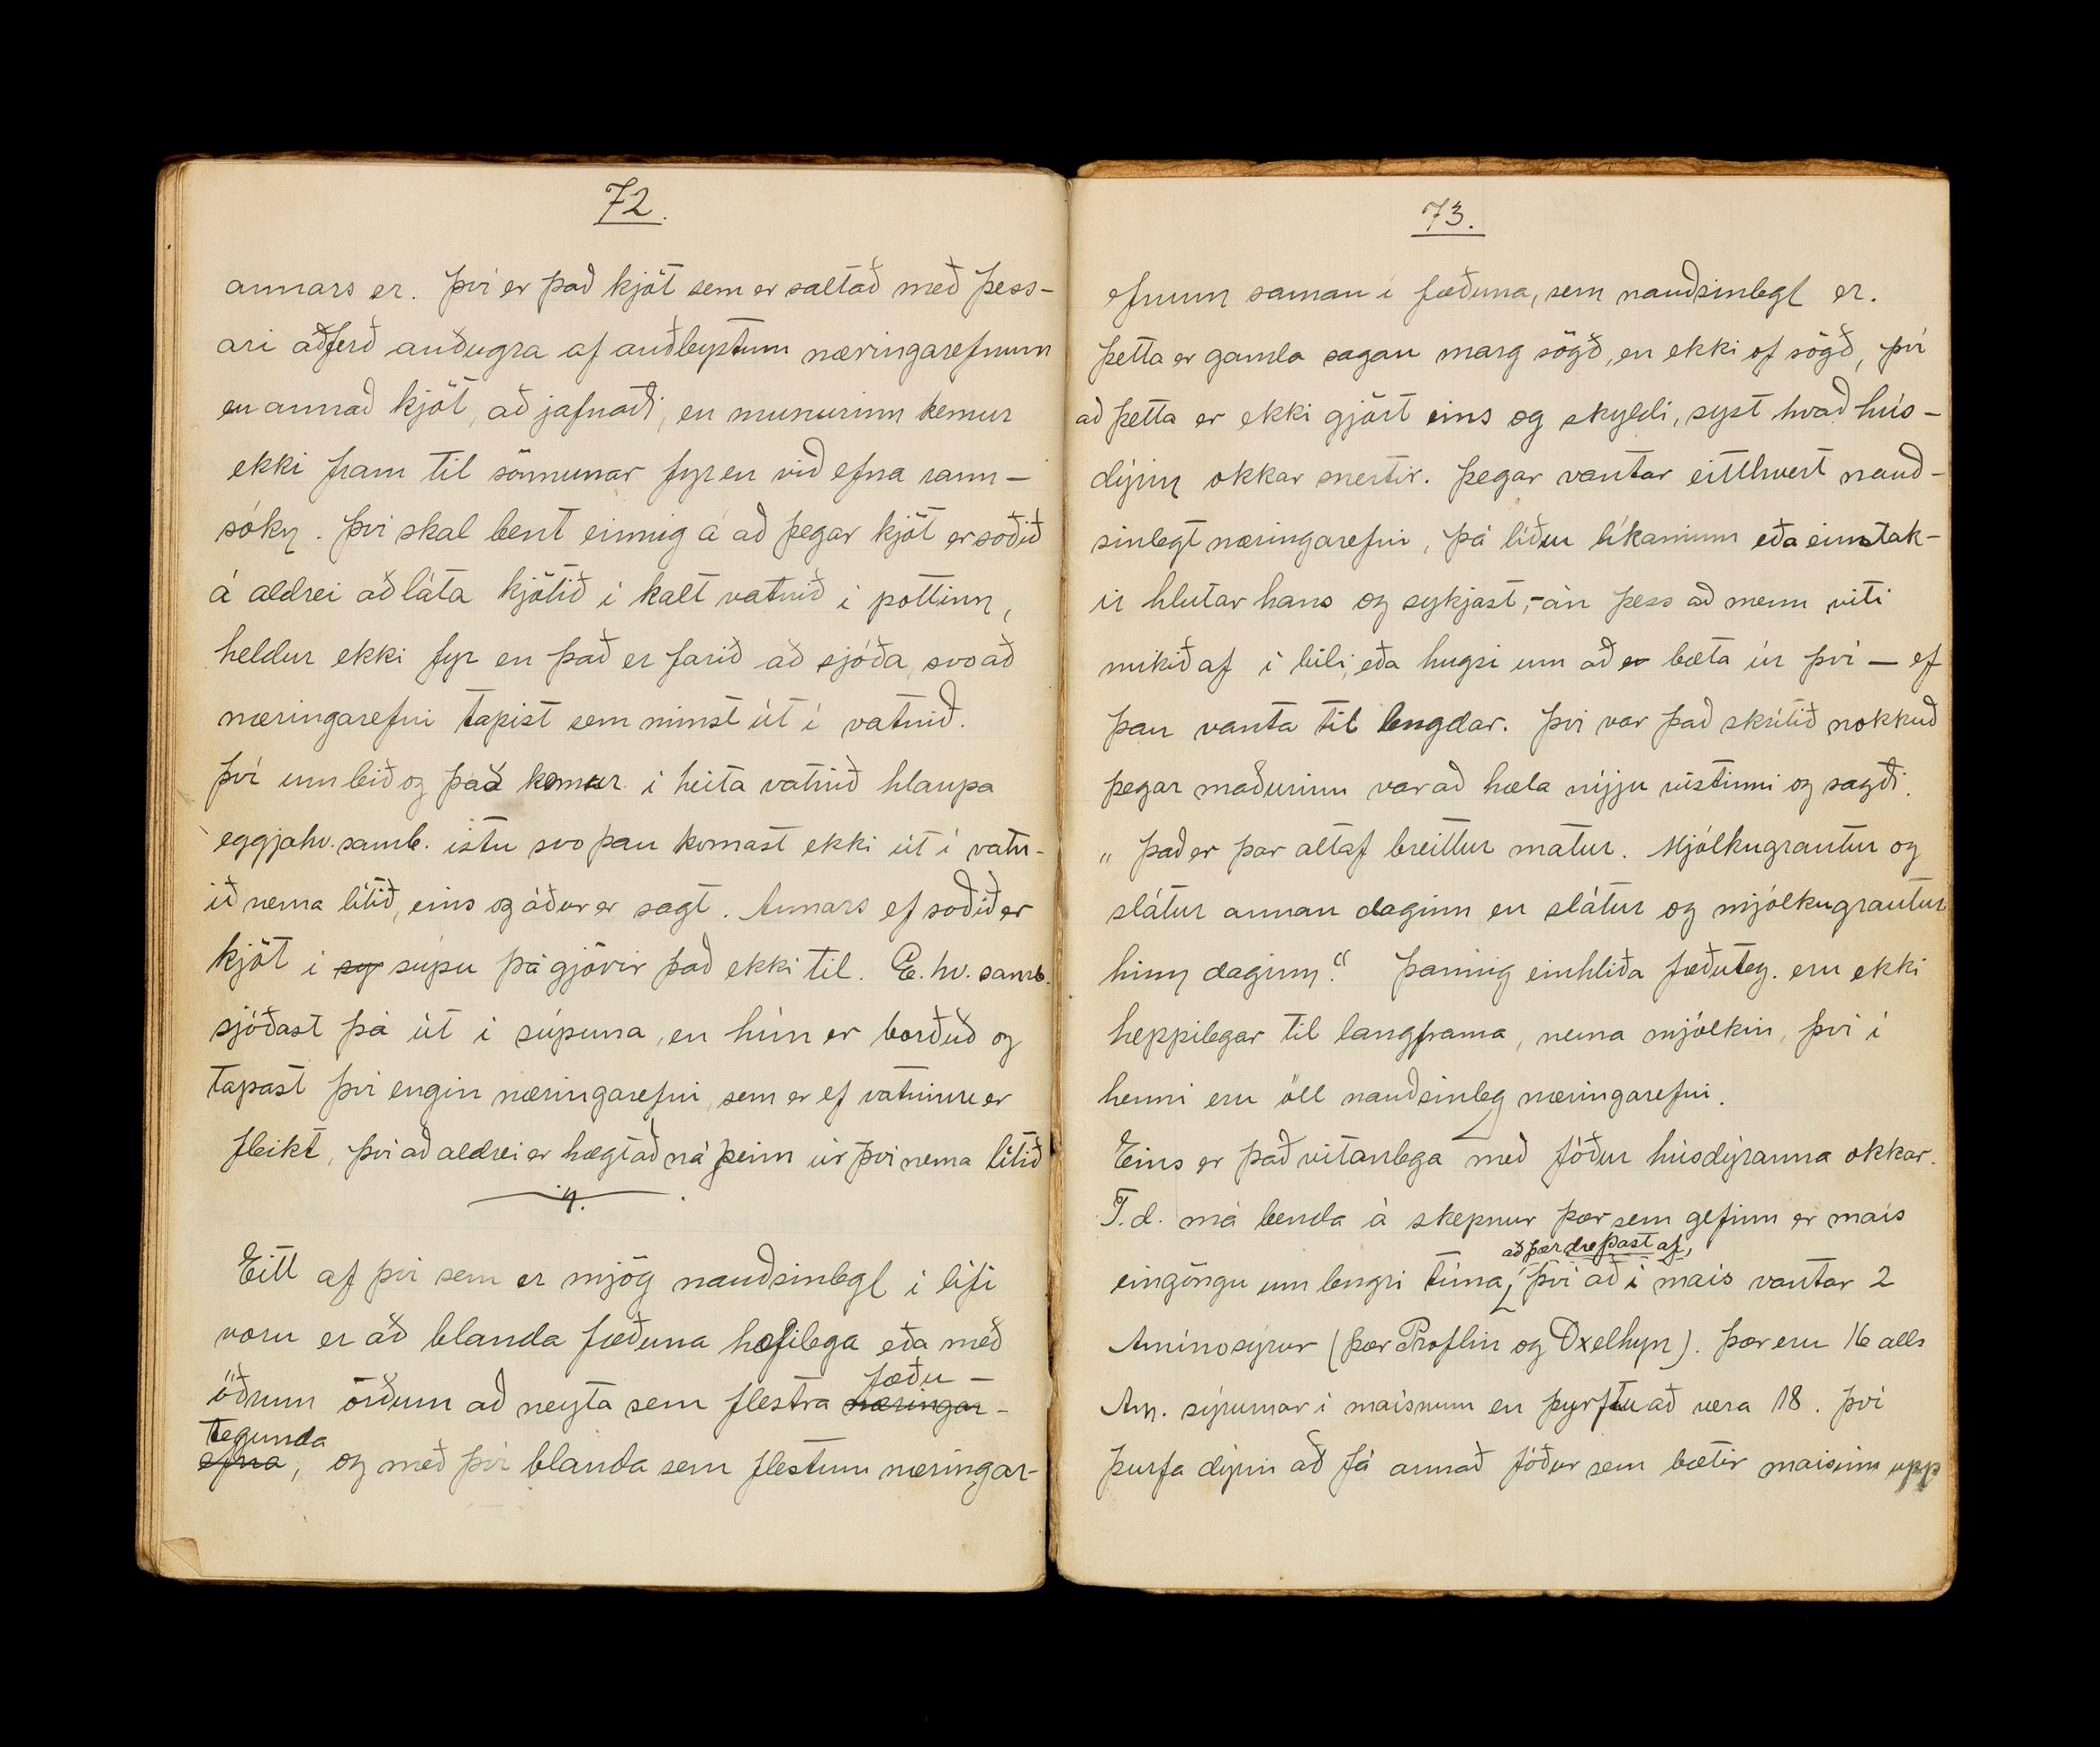 72.
annars er. Því er það kjöt sem er saltað með þess-
ari aðferð auðugra af auðleystum næringarefnum
en annað kjöt, að jafnaði, en munurinn kemur
ekki fram til sönnunar fyr en við efna rann-
sókn. Því skal bent einnig á að þegar kjöt er soðið
á aldrei að láta kjötið í kalt vatnið í pottinn,
heldur ekki fyr en það er farið að sjóða, svo að
næringarefni tapist sem minst út í vatnið.
Því um leið og það kemur í heita vatnið hlaupa
eggjahv. samb. ístu svo þau komast ekki út í vatn-
ið nema lítið, eins og áður er sagt. Annars ef soðið er
kjöt í sy súpu þá gjörir það ekki til. E. hv. samb.
sjóðast þá út í súpuna, en hún er borðuð og
tapast því engin næringarefni, sem er ef vatninu er
fleikt, því að aldrei er hægt að ná þeim úr því nema lítið
Eitt af því sem er mjög nauðsinlegt í lífi
voru er að blanda fæðuna hæfilega eða með
öðrum orðum að neyta sem flestra næringar- fæðu-
efna tegunda, og með því blanda sem flestum næringar-
73.
efnum saman í fæðuna, sem nauðsinlegt er.
Þetta er gamla sagan marg sögð, en ekki of sögð, því
að þetta er ekki gjört eins og skyldi, syst hvað hús-
dýrin okkar snertir. Þegar vantar eitthvert nauð-
sinlegt næringarefni, þá líður líkaminn eða einstak-
ir hlutar hans og sykjast, - án þess að menn viti
mikið af í bili, eða hugsi um að er bæta úr því — ef
þau vanta til lengdar. Því var það skrítið nokkuð
þegar maðurinn var að hæla nýju vistinni og sagði.
„ það er þar altaf breittur matur. Mjólkugrautur og
slátur annan daginn en slátur og mjólkugrautur
hinn daginn“. Þannig einhliða fæðuteg. eru ekki
heppilegar til langframa, nema mjólkin, því í
henni eru öll nauðsinleg næringarefni.
Eins er það vitanlega með fóður húsdýranna okkar.
T.d. má benda á skepnur þær sem gefinn er maís
að þær drepast af,
eingöngu um lengri tíma, því að í maís vantar 2
Amínosýrur (þær Proflin og Oxelhyn). Þær eru 16 alls
Am. sýrurnar í maísnum en þyrftu að vera 18. því
þurfa dýrin að fá annað fóður sem bætir maísinn upp